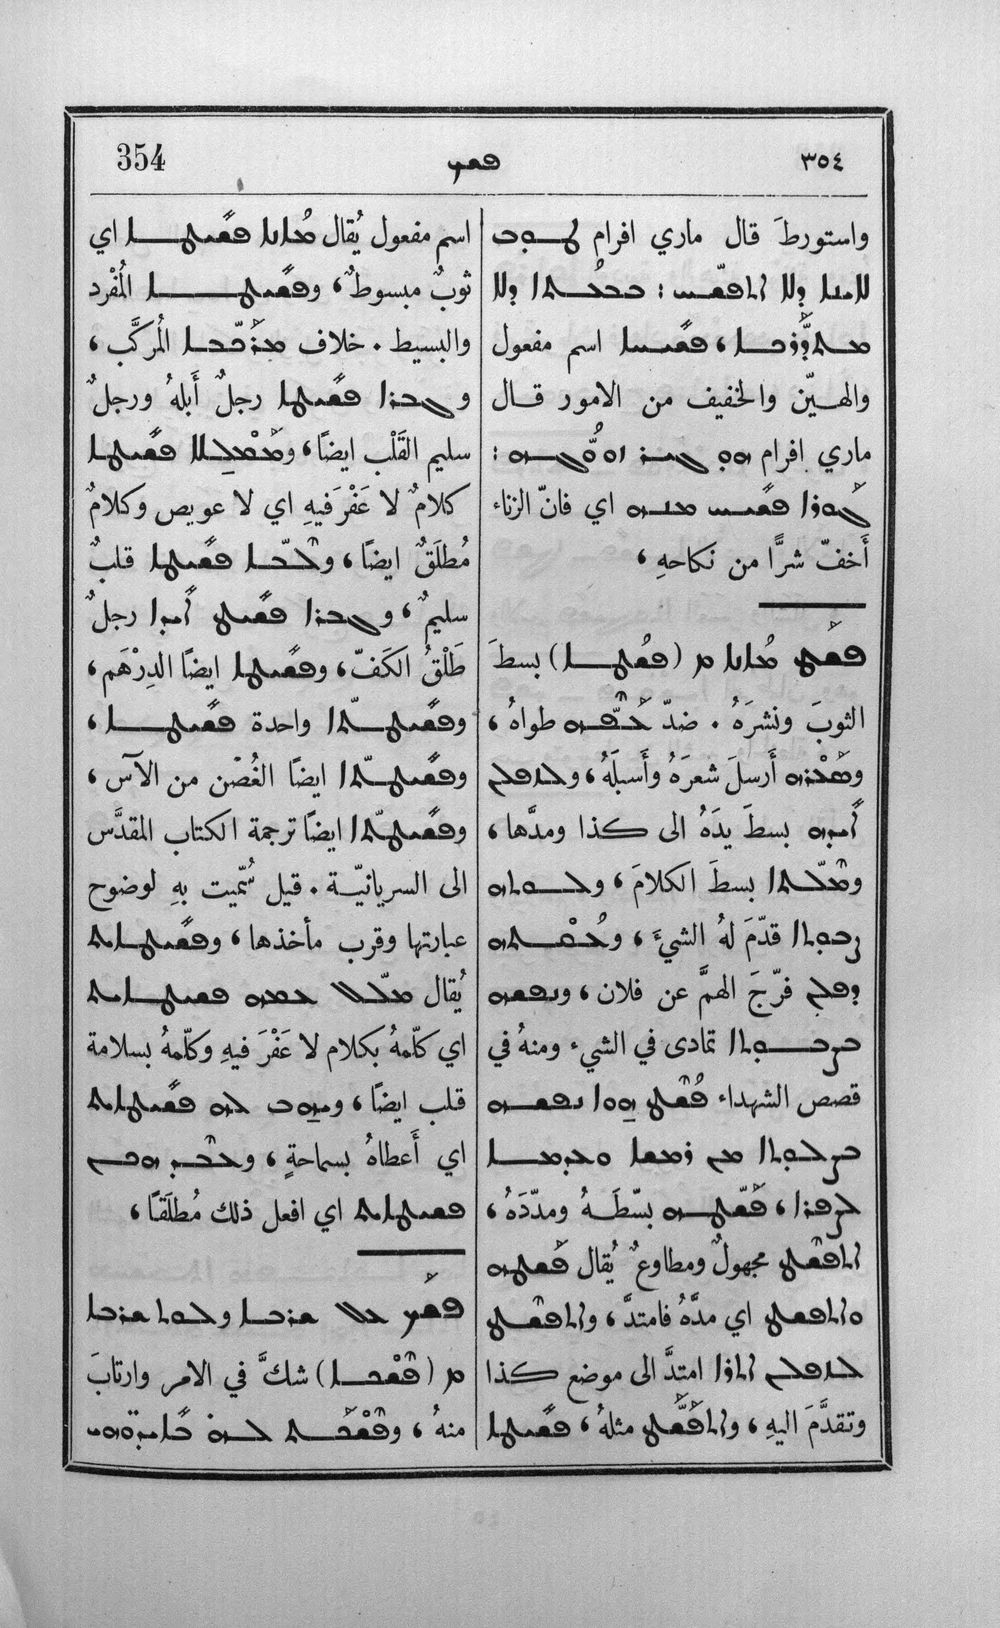 354 ܦܫܟ ٣٥٤
واستورطَ قال ماري افرام ܛܘܒ
ܠܐܝܢܐ ܕܠܐ
والهيّن والخفيف من الامور قال
ماري افرام
ܦܫܝܚ ܡܢܗ اي فانّ الزناء
أَخفّ شرًّا من نكاحهِ ،
ܦܫܛ ܡܐܢܐ ܡ (ܦܫܛܐ) بسطَ
الثوبَ ونشرَهُ . ضدّ ܥܦܩܗ طواهُ ،
ܘܣܥܪܗ أَرسلَ شعرَهُ وأَسبلَهُ ، ܘܠܘܩܕܡ
ܐܝܕܗ بسطَ يدَهُ الى كذا ومدَّها ،
ܘܡܠܬܐ بسطَ الكلامَ ،
قدّمَ لهُ الشيءَ ،
فرّجَ الهمَّ عن فلان ، ܘܢܦܫܗ
تمادى في الشيء ومنهُ في
قصص الشهداء ܦܫܛ ܗܘܐ ܢܦܫܗ
ܡܢ ܪܡܫܐ ܘܥܕܡܐ
ܠܨܦܪܐ ، ܦܫܛܗ بسّطَهُ ومدّدَهُ ،
ܐܬܦܫܛ مجهولٌ ومطاوعٌ يُقال ܦܫܛܗ
ܘܐܬܦܫܛ اي مدَّهُ فامتدَّ ، ܘܐܬܦܫܛ
ܐܬܪܐ امتدَّ الى موضع كذا
وتقدَّمَ اليهِ ، ܘܐܬܦܫܛ مثلهُ ، ܦܫܝܛܐ
اسم مفعول يُقال ܡܐܢܐ ܦܫܝܛܐ اي
ثوبٌ مبسوطٌ ، ܘܦܫܝܛܐ المُفْرد
والبسيط . خلاف ܡܪܟܒܐ المُركَّب ،
ܘܓܒܪܐ ܦܫܝܛܐ رجلٌ أَبلهُ ورجلٌ
سليم القَلْب ايضًا ، ܘܡܡܠܠܐ ܦܫܝܛܐ
كلامٌ لا عَفْرَ فيهِ اي لا عويص وكلامٌ
مُطلَقٌ ايضًا ، ܘܠܒܐ ܦܫܝܛܐ قلبٌ
سليمٌ ، ܘܓܒܪܐ ܦܫܝܛ ܐܝܕܐ رجلٌ
طَلْقُ الكَفّ ، ܘܦܫܝܛܐ ايضًا الدِرْهَم ،
ܘܦܫܝܛܬܐ واحدة ܦܫܝܛܐ ،
ܘܦܫܝܛܬܐ ايضًا الغُصْن من الآس ،
ܘܦܫܝܛܬܐ ايضًا ترجمة الكتاب المقدَّس
الى السريانيّة . قيل سُمّيت بهِ لوضوح
عبارتها وقرب مأخذها ، ܘܦܫܝܛܐܝܬ
يُقال ܡܠܠ ܥܡܗ ܦܫܝܛܐܝܬ
اي كلّمهُ بكلام لا عَفْرَ فيهِ وكلّمهُ بسلامة
قلب ايضًا ، ܘܝܗܒ ܠܗ ܦܫܝܛܐܝܬ
اي أَعطاهُ بسماحةٍ ، ܘܥܒܕ ܗܕܡ
ܦܫܝܛܐܝܬ اي افعل ذلك مُطلَقًا ،
ܦܫܟ ܥܠ ܫܪܒܐ ܘܠܘܬ ܫܪܒܐ
ܡ (ܦܫܟܐ) شكَّ في الامر وارتابَ
منهُ ،